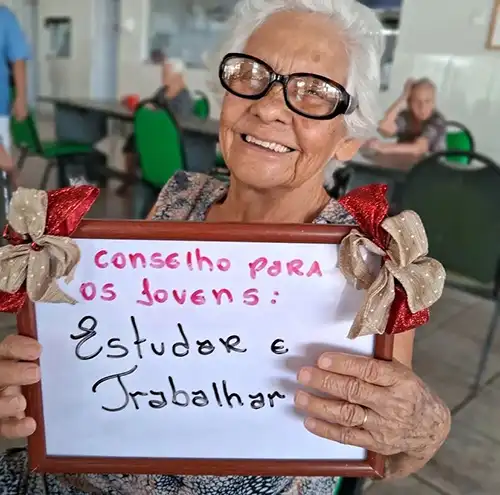 Conselho para
os Jovens:
Estudar e
Trabalhar